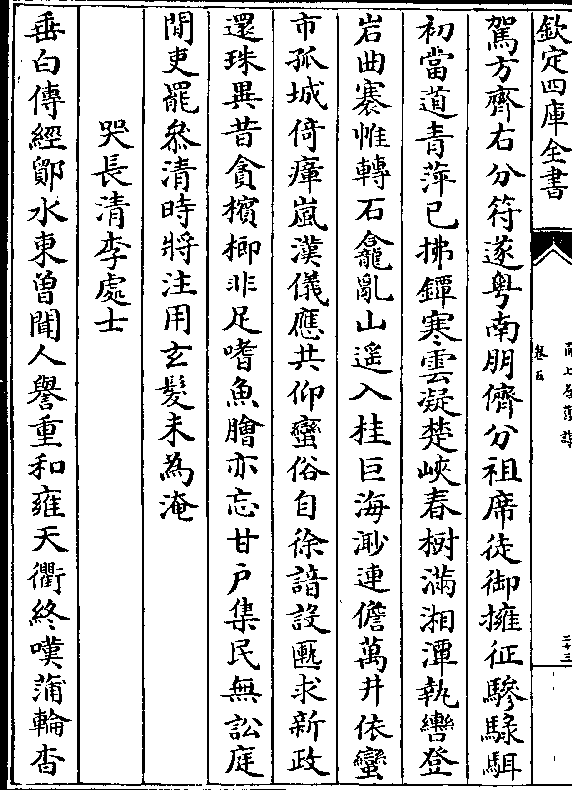 欽定四庫全書
卷五
二十三
駕方齊右分符遂粤南朋儕分祖席徒御擁征驂騄駬
初當道青萍已拂鐔寒雲凝楚峽春樹滿湘潭執轡登
岩曲褰帷轉石龕亂山遥入桂巨海渺連儋萬井依蠻
市孤城倚瘴嵐漢儀應共仰蠻俗自徐諳設匭求新政
還珠異昔貪檳榔非足嗜魚膾亦忘甘戶集民無訟庭
閒吏罷叅清時將注用玄髪未為淹
哭長清李處士
垂白傳經鄮水東曾聞人譽重和雍天衢終嘆蒲輪杳